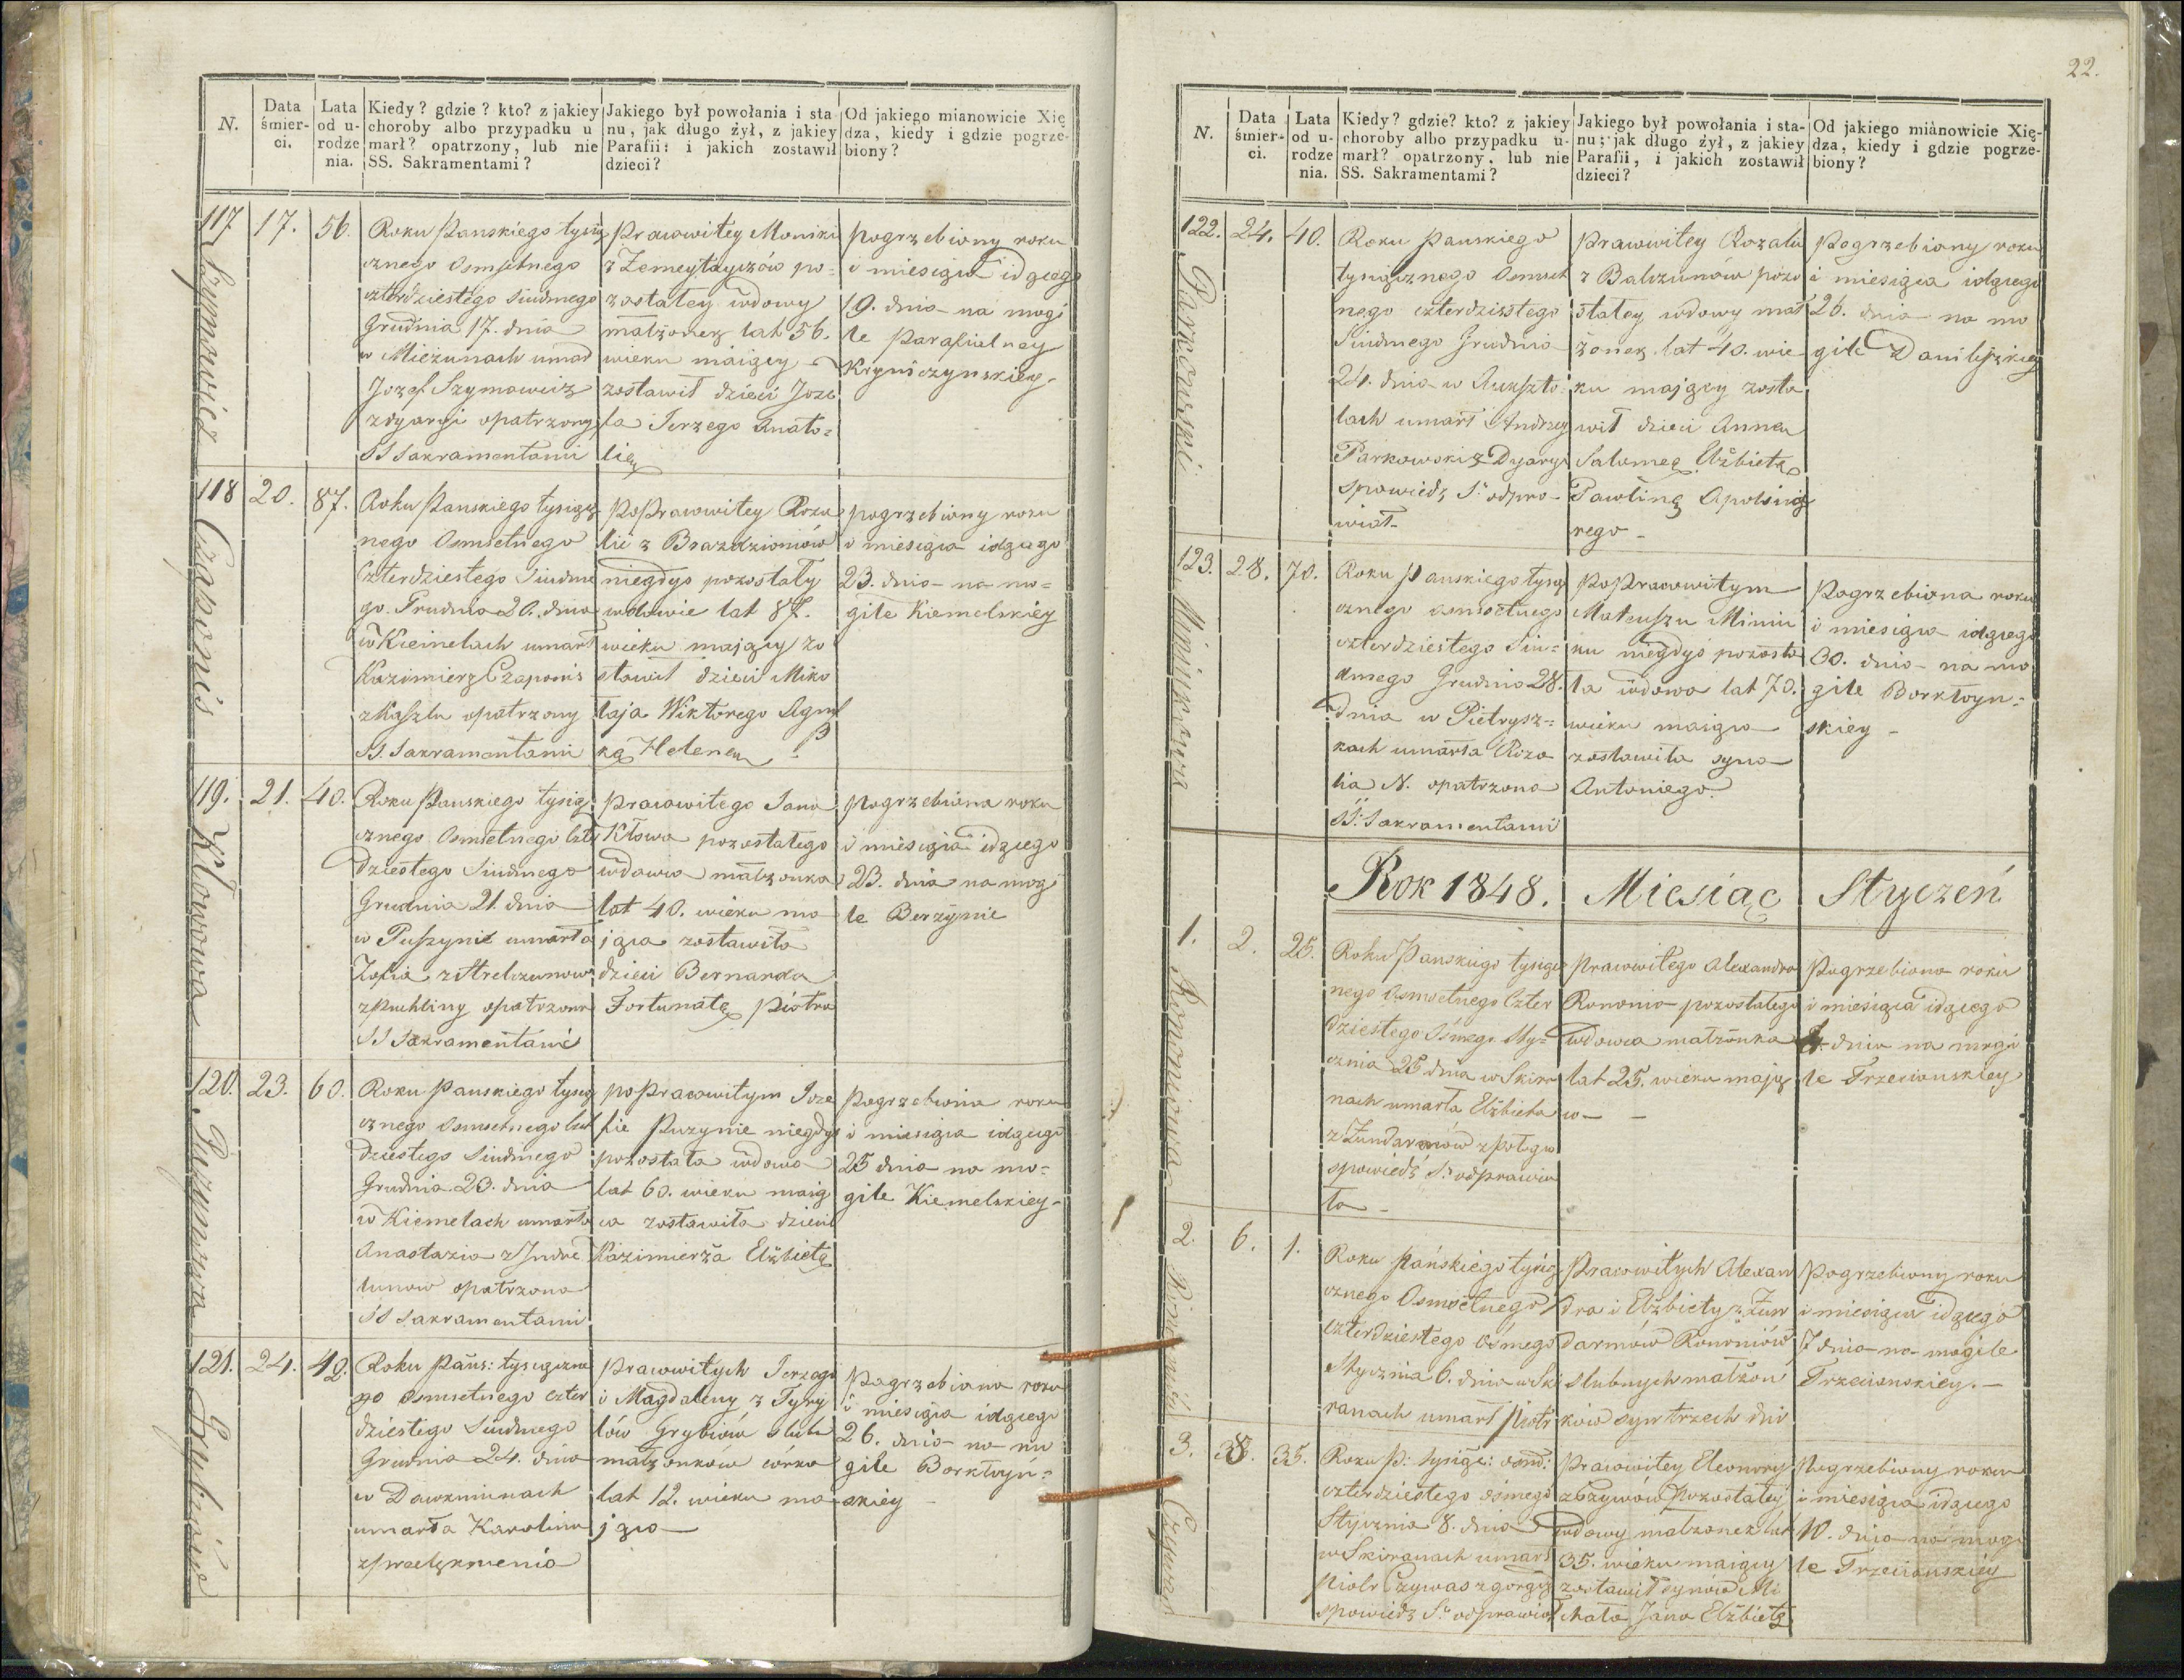 N.
Data śmier-
ci.
Lata
od u-
rodze
nia.
Kiedy? gdzie? kto? z jakiey
choroby albo przypadku u
marł? opatrzony, lub nie
SS. Sakramentami?
Jakiego był powołania i sta
nu, jak długo żył, z jakiey
Parafii: i jakich zostawił
dzieci?
Od jakiego mianowicie Xię
dza, kiedy i gdzie pogrze-
biony?
117
Szymowicz
17.
56.
Roku Panskiego tysią
cznego Osmsetnego
czterdziestego siudmego
Grudnia 17. dnia
w Mieżunach umarł
Jozef Szymowicz
z dyaryi opatrzony
SS Sakramentami
Pracowitey Moniki
z Zemeytayczów po=
zostałey wdowy
małżonek lat 56.
wieku maiący
zostawił dzieci Joze
fa Jerzego Anato=
lią
pogrzebiony roku
i miesiąca idącego
19. dnia na mogi
le Parafialney
Kryniczynskiey
118
Czaponis
20.
87.
Roku Panskiego tysiącz
nego Osmsetnego
Czterdziestego Siudme
go Grudnia 20. dnia
w Kiemelach umarł
Kazimierz Czaponis
z Kaszlu opatrzony
SS. Sakramentami
Po Pracowitey Roza
lii z Brazdzioniów
niegdys pozostały
wdowiec lat 87.
wieku mający zo
stawił dzieci Miko
łaja Wiktorego Agnisz
kę Helenę
pogrzebiony roku
i miesiąca idącego
23. dnia na mo=
gile Kiemelskiey
119.
Kłowowa
21.
40.
Roku Panskiego tysią
cznego Osmsetnego Czter
dziestego Siudmego
Grudnia 21. dnia
w Puszynie umarła
Zofia z Strelczunow
z puchliny opatrzona
SS Sakramentami
Pracowitego Jana
Kłowa pozostałego
wdowca małżonka
lat 40. wieku ma
jąca zostawiła
dzieci Bernarda
Fortunatę Piotra
pogrzebiona roku
i miesiąca idącego
23. dnia na mogi
le Berzynie
120.
Puzynowa
23.
60.
Roku Panskiego tysią
cznego Osmsetnego Czter
dziestego Siudmego
Grudnia 23. dnia
w Kiemelach umarła
Anastazia z Indre
lunow opatrzona
SS Sakramentami
po Pracowitym Joze
fie Puzynie niegdys
pozostała wdowa
lat 60. wieku maią
ca zostawiła dzieci
Kazimierza Elżbietę
Pogrzebiona roku
i miesiąca idącego
25 dnia na mo=
gile Kiemelskiey
121.
24.
12.
Roku Pans: tysiączne
go Osmsetnego czter
dziestego Siudmego
Grudnia 24. dnia
w Dawkniunach
umarła Karolina
z przelęknienia
Pracowitych Jerzego
i Magdaleny z
Grybiów slubn
małżonków córka
lat 12. wieku ma
jąca
Pogrzebiana roku
i miesiąca idącego
26. dnia na mo
gile Borkłoyń=
skiey
22.
N.
Data
śmier-
ci.
Lata
od u-
rodze
nia.
Kiedy? gdzie? kto? z jakiey
choroby albo przypadku u-
marł? opatrzony, lub nie
SS. Sakramentami?
Jakiego był powołania i sta-
nu; jak długo żył, z jakiey
Parafii, i jakich zostawił
dzieci?
Od jakiego mianowicie Xię-
dza, kiedy i gdzie pogrze-
biony?
122.
Parkowski
24.
40.
Roku Panskiego
tysiącznego Osmset
nego czterdziestego
Siudmego Grudnia
24. dnia w Aukszto
lach umarł Andrzey
Parkowski z Dyaryi
spowiedz S. odpra-
wiał
Pracowitey Rozalii
z Balczunów pozo
stałey wdowy mał
żonek lat 40. wie
ku mający zosta
wił dzieci Annę
Salomeę Elżbietę
Pawlinę
rego
Pogrzebiony roku
i miesiąca idącego
26. dnia na mo
gile Daniliszkiey
123.
Miniukowa
28.
70.
Roku Panskiego tysią
cznego osmsetnego
czterdziestego Siu=
dmego Grudnia 28.
dnia w Pietrysz=
kach umarła Roza
lia N. opatrzona
SS. Sakramentami
Po Pracowitym
Mateuszu Miniu
ku niegdys pozosta
ła wdowa lat 70.
wieku maiąca
zostawiła syna
Antoniego.
Pogrzebiona roku
i miesiąca idącego
30. dnia na mo
gile Borkłoyn=
skiey
Rok 1848. Miesiąc Styczeń
1.
Rononiowa
2.
25.
Roku Panskiego tysiącz
nego Osmsetnego Czter
dziestego Ósmego Sty=
cznia 25 dnia w Skira
nach umarła Elżbieta
z Zundarmów z połogu
spowiedź S. odprawia
ła
Pracowitego Alexandra
Rononia pozostałego
wdowca małżonka
lat 25. wieku mają
ca
Pogrzebiona roku
i miesiąca idącego
4. dnia na mogi
le Trzecianskiey
2.
6.
1.
Roku Pańskiego tysią
cznego Osmsetnego
czterdziestego ósmego
Stycznia 6. dnia w Ski
ranach umarł Piotr
Pracowitych Alexan
dra i Elżbiety z Zun
darmów Rononiów
slubnych małżon
ków syn trzech dni
Pogrzebiony roku
i miesiąca idącego
7 dnia na mogile
Trzecianskiey.
3.
Czywas
8.
35.
Roku P: tysiącz: osmś:
czterdziestego ósmego
Stycznia 8. dnia
w Skiranach umarł
Piotr Czywas z gorącz
spowiedz S. odprawiał
Pracowitey Eleonory
pozostałey
wdowy małżonek lat
35. wieku maiący
zostawił synów Mi
chała Jana Elżbietę
Pogrzebiony roku
i miesiąca idącego
10. dnia na mogi
le Trzecianskiey